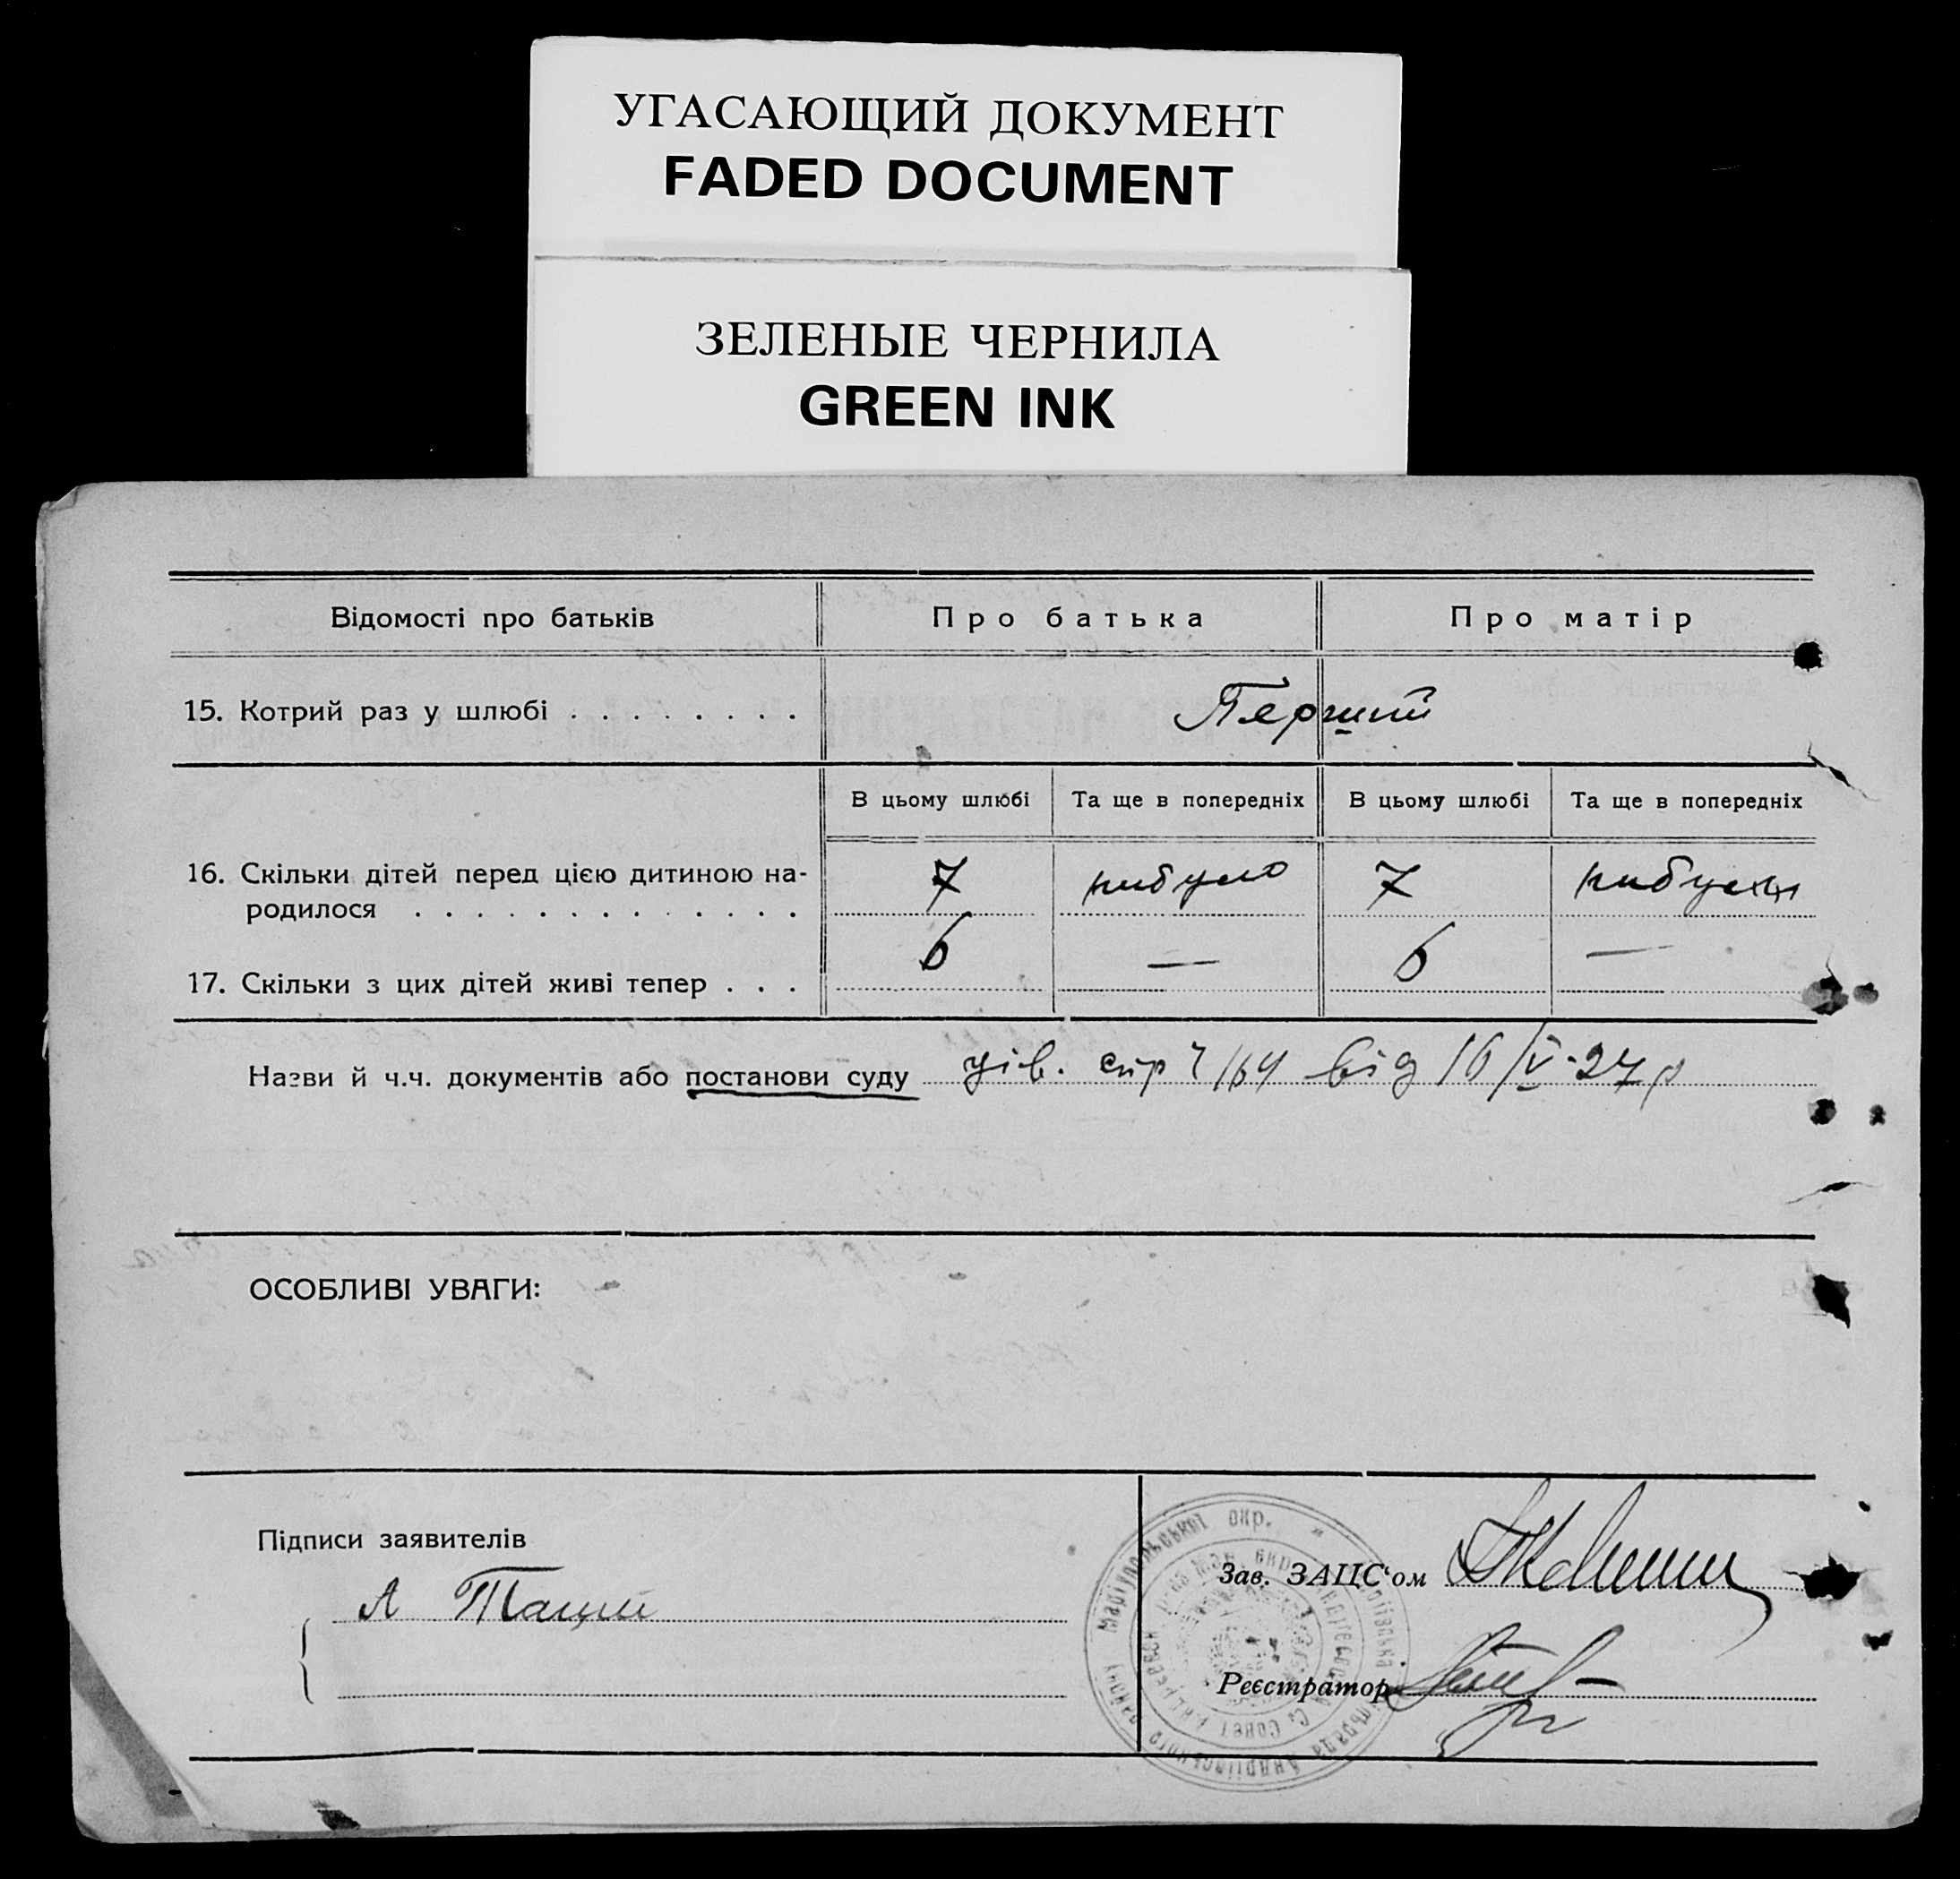 УГАСАЮЩИЙ ДОКУМЕНТ
FADED DOCUMENT
ЗЕЛЕНЫЕ ЧЕРНИЛА
GREEN INK
Відомості про батьків Про батька Про матір
15. Котрий раз у шлюбі . . . . . . . . Перший
В цьому шлюбі Та ще в попередніх В цьому шлюбі Та ще в попередніх
16. Скільки дітей перед цією дитиною на-
родилося . . . . . . . . . . . . . 7 небуло 7
17. Скільки з цих дітей живі тепер . . . 6 — 6 —
Назви й ч.ч. документів або постанови суду від 16/V-27 р
ОСОБЛИВІ УВАГИ:
Підписи заявителів
А Тацій
Зав. ЗАЦС'ом
Реєстратор
Маріупольської окр.